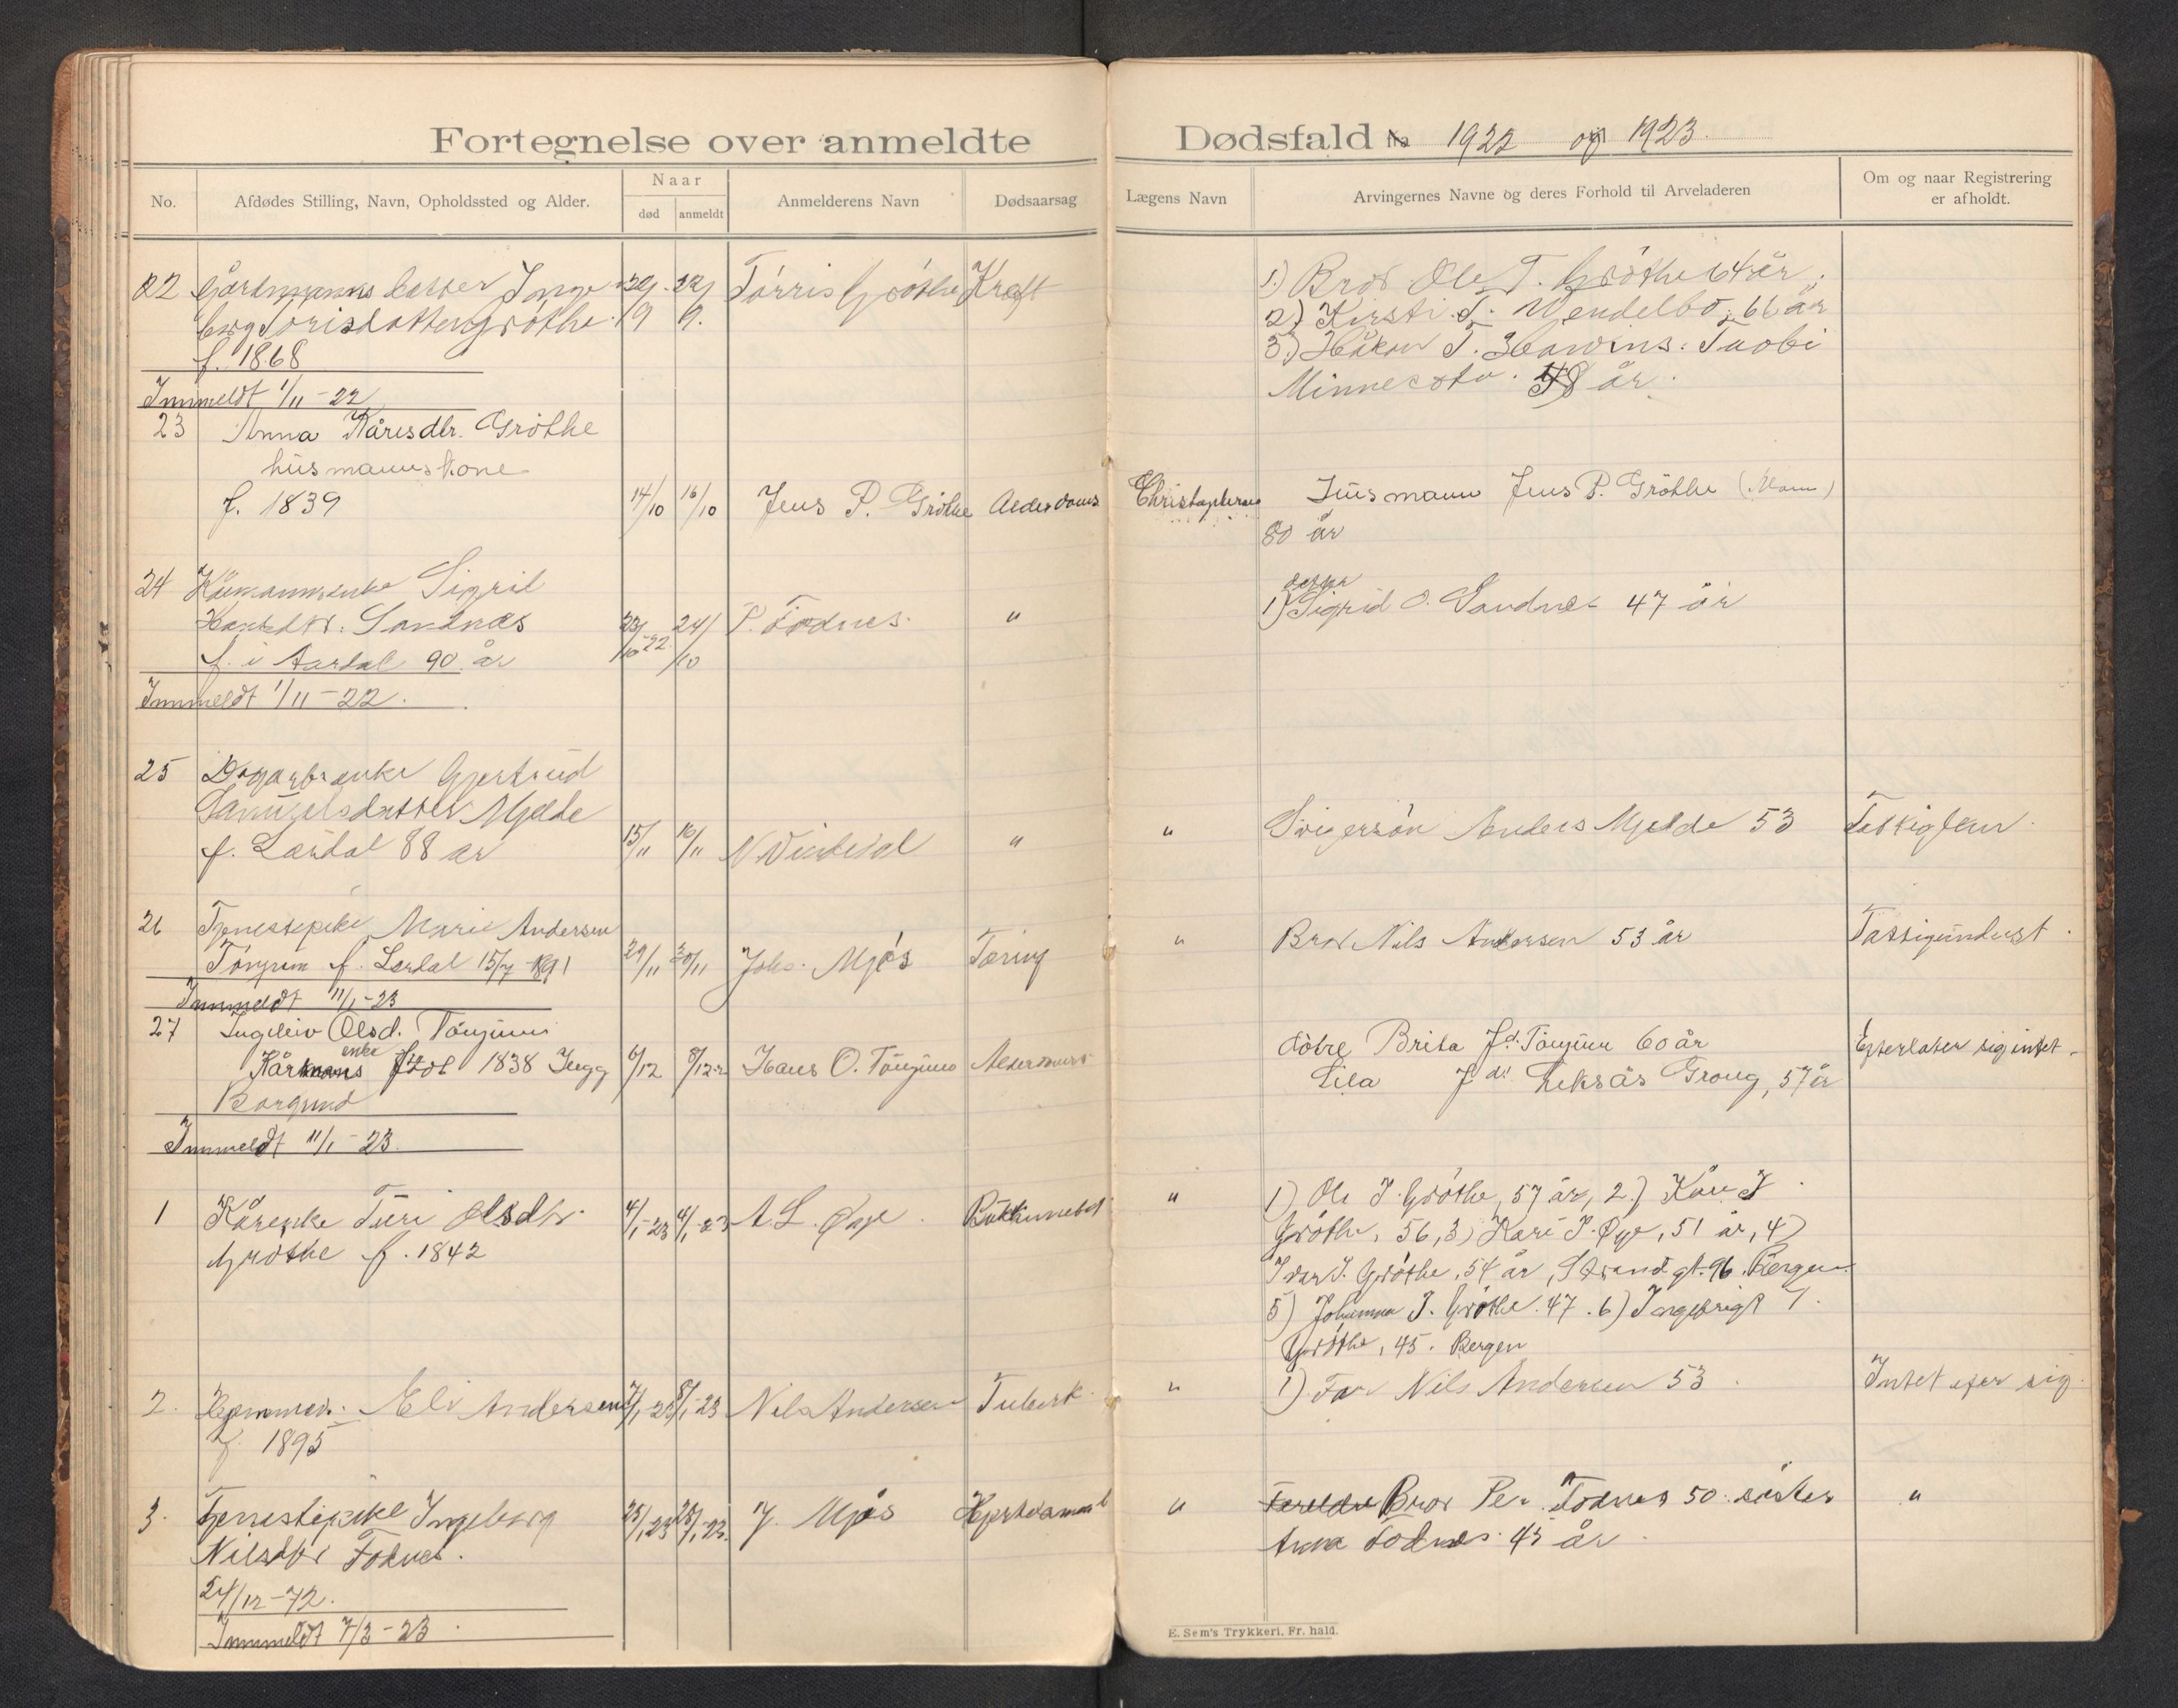 Fortegnelse over anmeldte Dødsfald fra 1922 og 1923.
No. Afdødes Stilling, Navn, Opholdssted og Alder. Naar død anmeldt Anmelderens Navn Dødsaarsag Lægens Navn Arvingernes Navne og deres Forhold til Arveladeren Om og naar Registrering er afholdt.
22 Gårdmanns datter Inge 29/ 29/ Tórris Gróthe Kræft
berg Torisdatter Gróthe 9 9.
f. 1868
1) Bror Ole T. Gróthe 64 år.
2) Kirsti T. Wendelbo. 66 år
3) Håkon T. Hawins.
Minnesota. 48 år.
Innmeldt 1/11-22
23 Anna Kåresdtr. Gröthe
husmannskone
f. 1839 14/10 16/10 Jens P. Gröthe Alderdoms Christophersen Husmann Jens P. Gröthe (Mann)
80 år
24 Sigrid
Sandnes 23/10-22 24/10 P. Fodnes. "
f. i Aardal 90 år
datter
1) Sigrid O. Sandnes 47 år
Innmeldt 1/11-22.
25 Gjertrud
Samuelsdatter Mjelde
f. Lærdal 88 år 15/11 16/11 N Vindedal " " Svigersón Anders Mjelde 53 Fattiglem.
26 Tjenestepike Marie Andersen
Tónjum f. Lærdal 15/7-1891 29/11 30/11 Johs. Mjós Tæring " Bror Nils Andersen 53 år Fattigunderst.
Innmeldt 11/1-23
27 Ingeleiv Olsd. Tönjum
enke
Kårmanns 1838 6/12 8/12-22 Hans O. Tönjum Alderdoms
Borgund
dötre Brita J.d. Tönjum 60 år Efterlater sig intet.
Lila J.d. Groug, 57 år
Innmeldt 11/1-23.
1 Kårenke Turi Olsdtr. 4/1-23 4/1-23 A. L. Øye "
Gróthe f. 1842
1) Ole J. Gróthe, 57 år, 2.) Kåre J.
Gróthe, 56, 3) Kari J. Øye, 51 år, 4)
Ivar J. Gróthe, 54 år, Strandgt. 96. Bergen
5) Johanna J. Gróthe. 47. 6) Ingebrigt J.
Gróthe, 45. Bergen
2. Hjemmev. Eli Andersen 7/1-23 8/1-23 Nils Andersen Tuberk. " 1). Far Nils Andersen 53. Intet efter sig.
f. 1895
3. Tjenestepike Ingeborg 25/1-23 J. Mjøs " Foreldre Bror Per Fodnes 50. söster "
Nilsdtr Fodnes.
Anna Fodnes. 45 år.
24/12-72.
Innmeldt 7/3-23.
E. Sem's Trykkeri. Fr.hald.